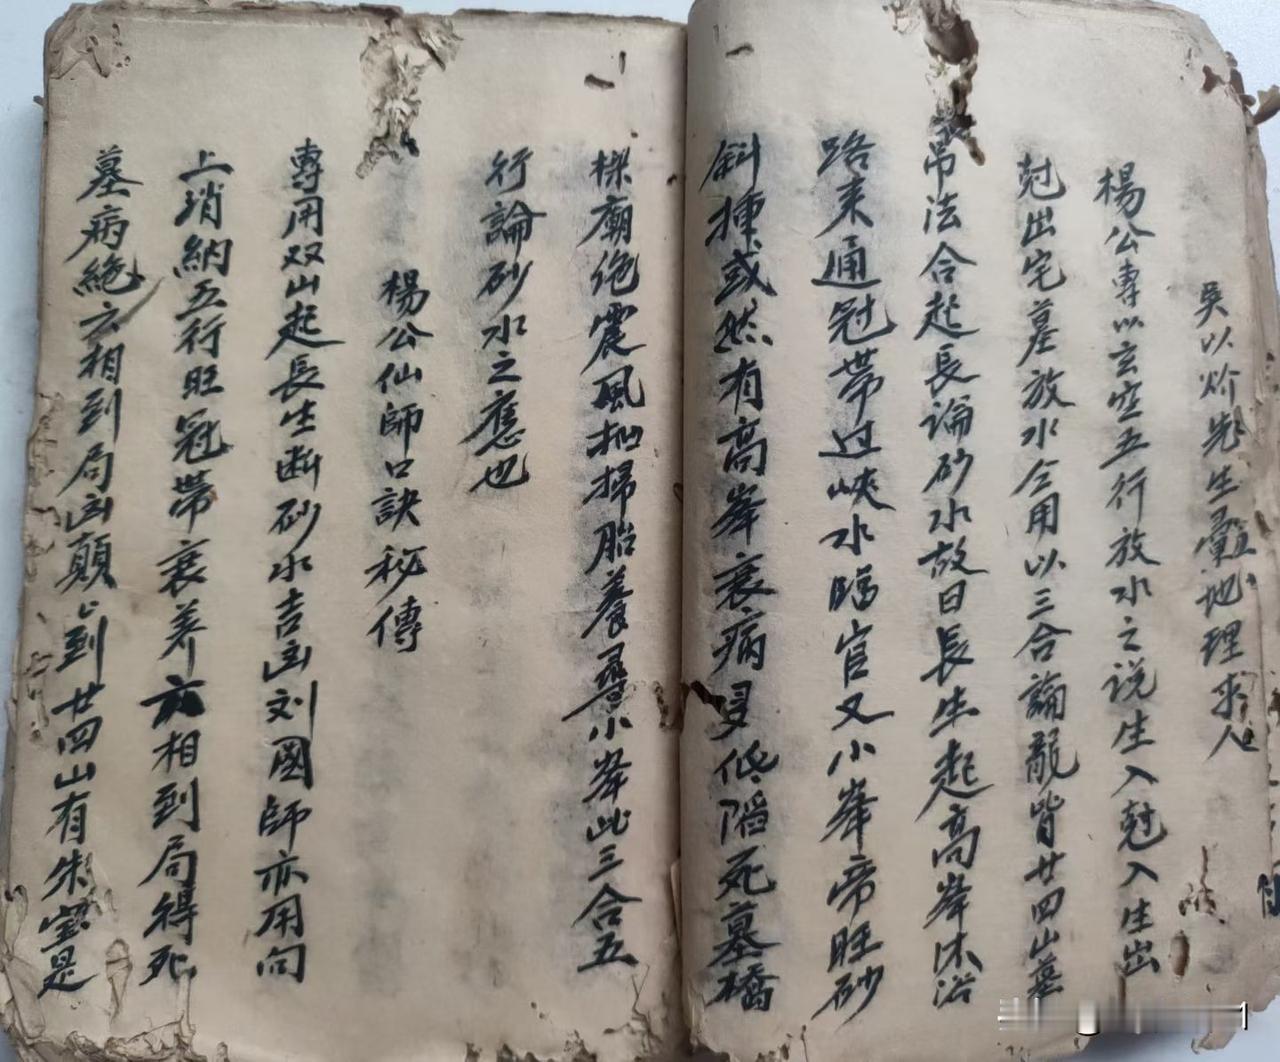 吳以炌先生彙地理求人
楊公專以玄空五行放水之说生入尅入生出
尅出宅墓放水仝用以三合論龍背廿四山墓
吊法合起長論砂水故曰長生起高峯沐浴
路来通冠帯过峽水臨官又小峯帝旺砂
斜撞或然有高峯衰病身低陷死墓橋
樑廟绝震風扫掃胎養尋小峯此三合五
行論砂水之應也
楊公仙師口訣秘傳
專用双山起長生断砂水吉凶刘國師亦用向
上消納五行旺冠帶衰养六相到局得死
墓病絶六相到局凶顛〻到廿四山有朱宝是